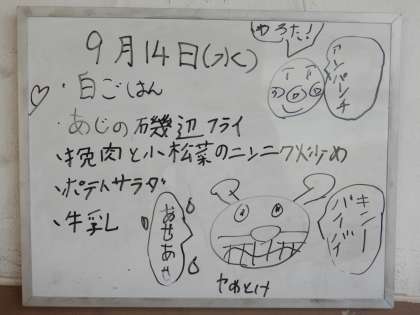 9月14日(水)
・白ごはん
・あじの磯辺フライ
・挽肉と小松菜のニンニク炒め
・ポテトサラダ
・牛乳
やられた!
アンパンチ
バイバイ
キーン